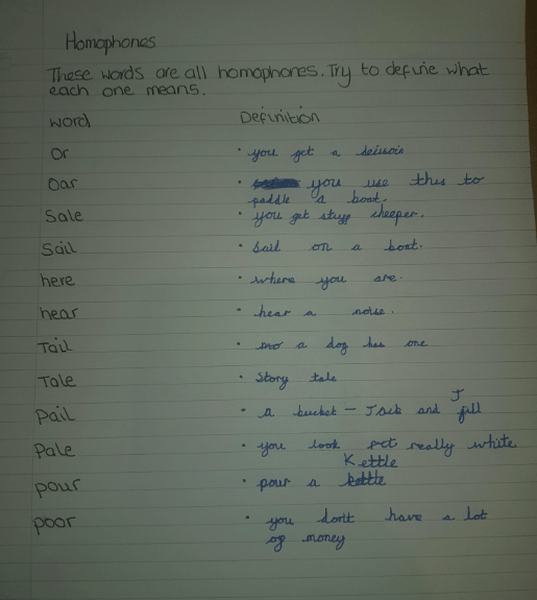 Homophones
These words are all homophones. Try to define what
each one means.
word Definition
Or • you get a deissois
Oar • you use this to
paddle a boat.
Sale • you get stuff cheeper.
Sail • sail on a boat.
here • where you are.
hear • hear a noise.
Tail • a dog has one
Tale • Story tale
pail • a bucket - Jack and Jill
Pale • you look really white
pour • pour a Kettle
poor • you don't have a lot
of money